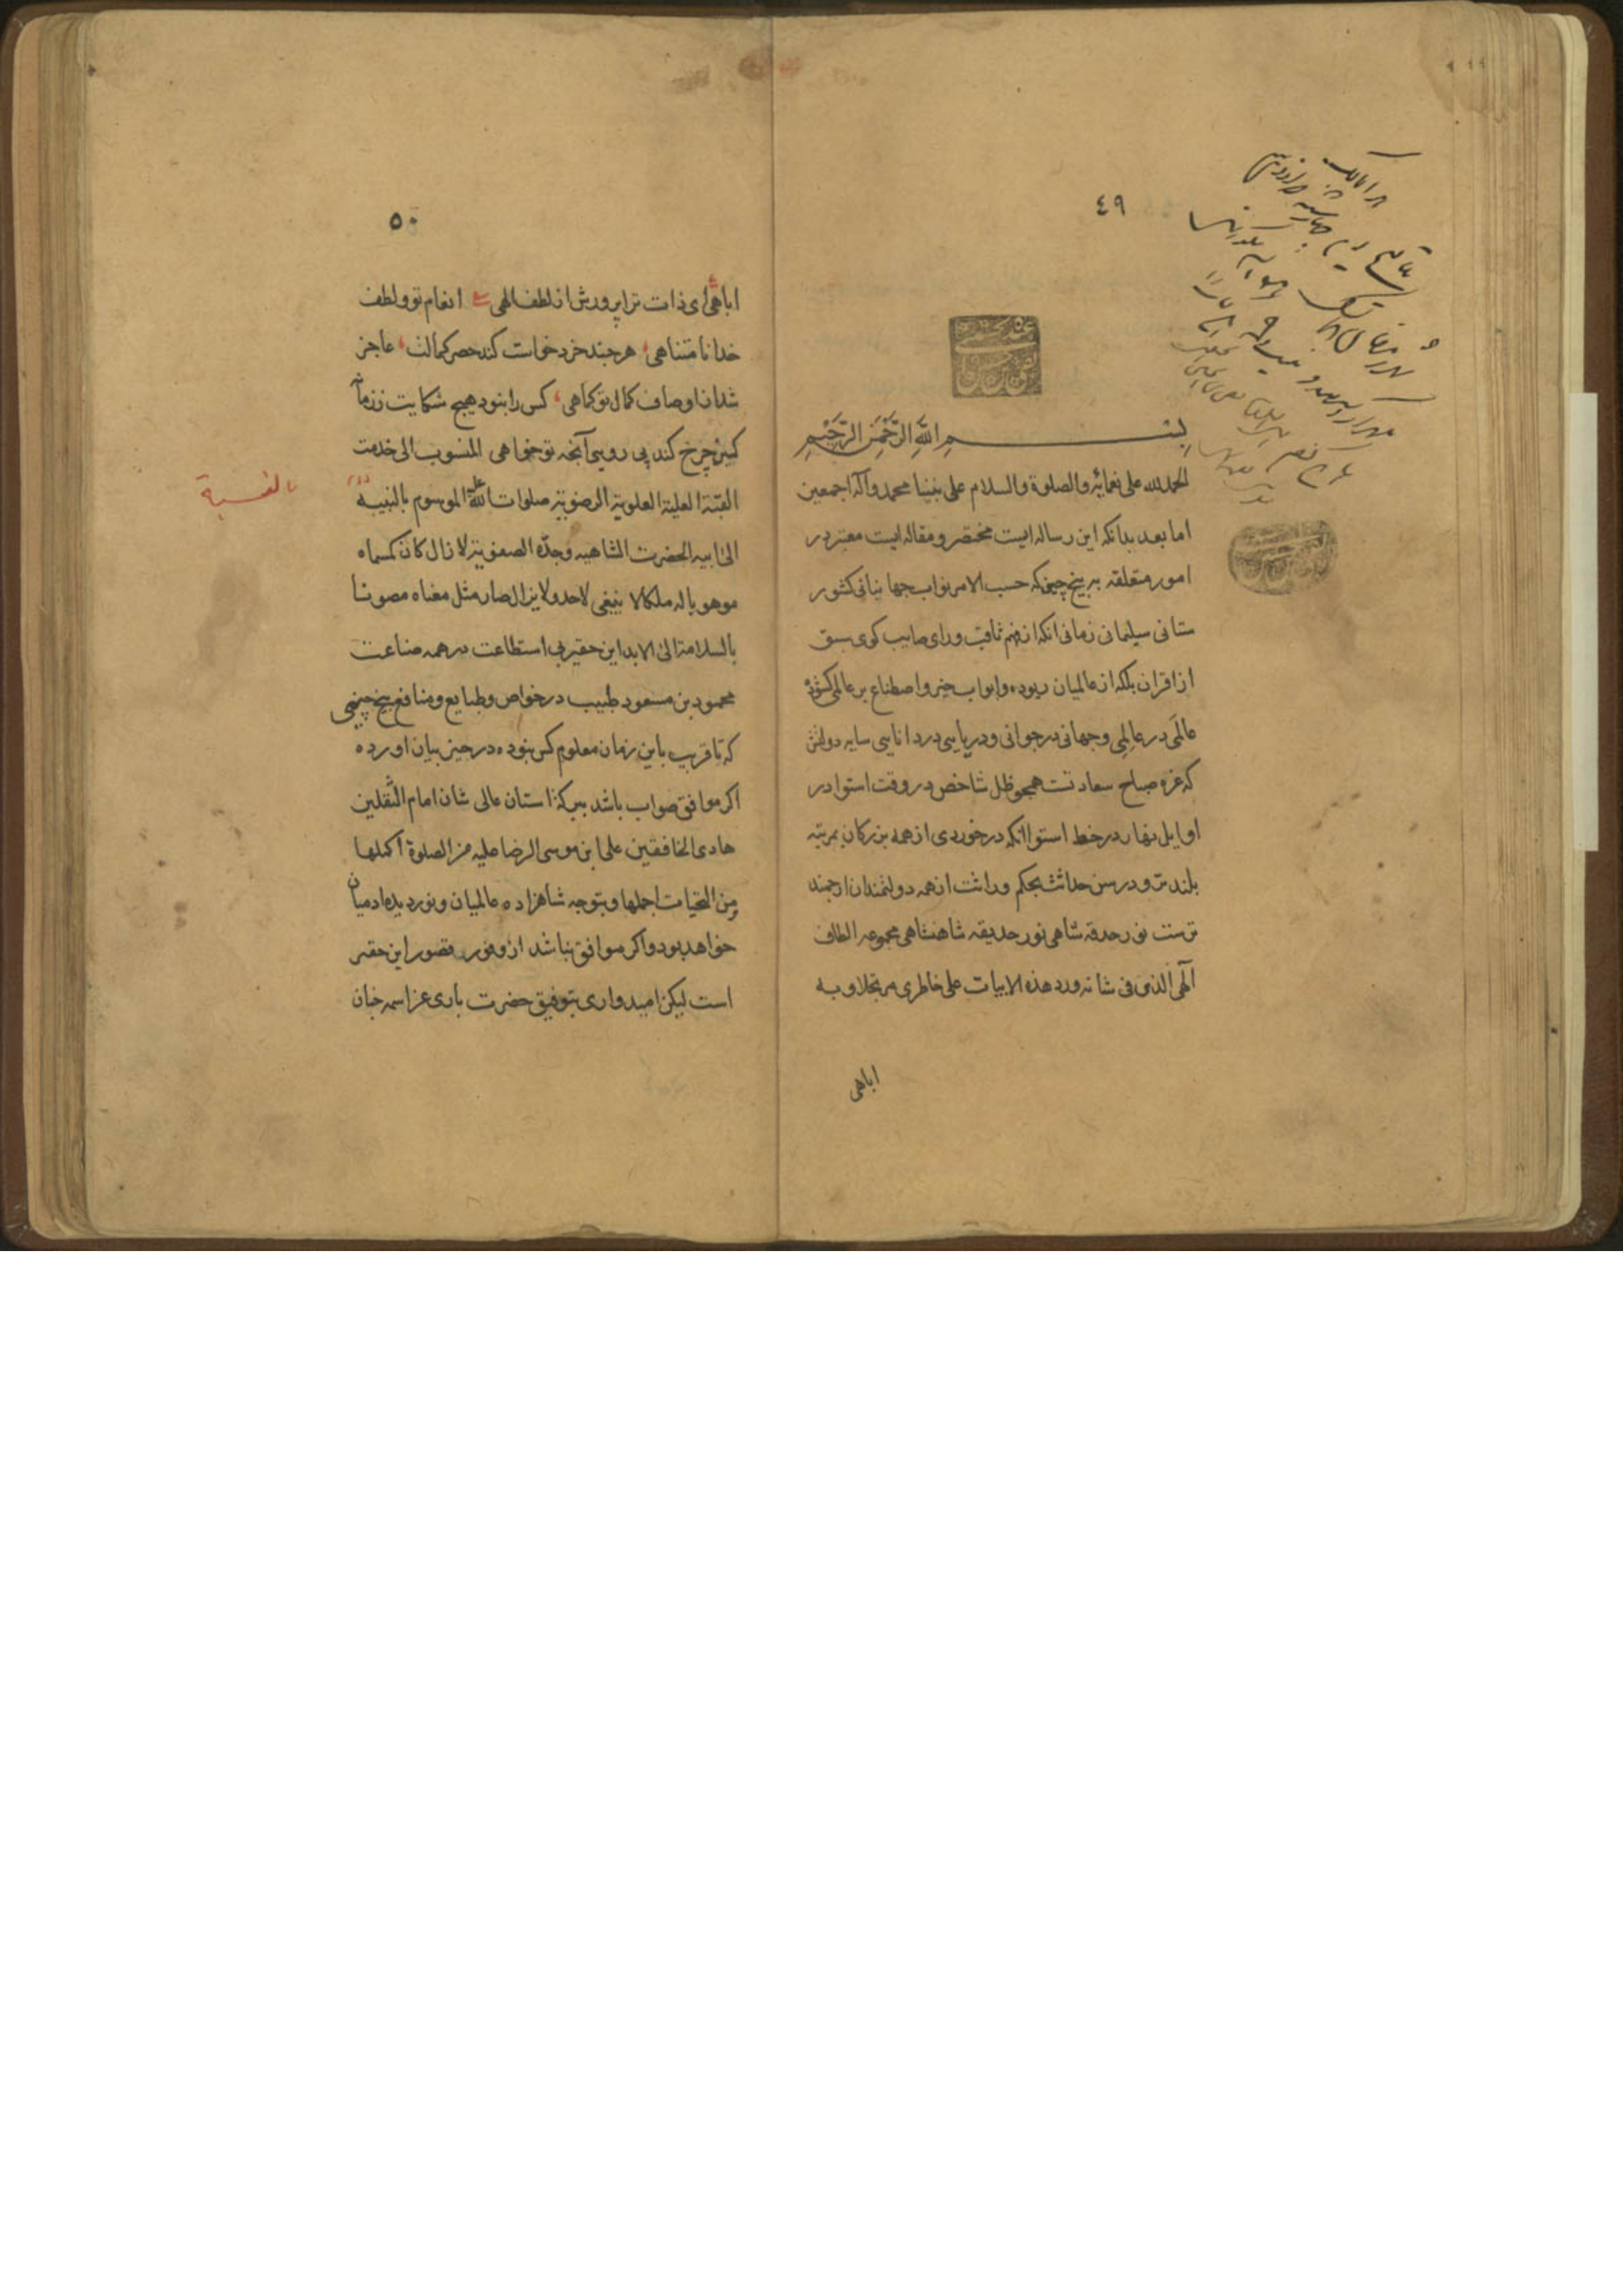 ٤٩
بسم الله الرحمن الرحيم
الحمد لله على نعمائه والصلوة والسلام على نبينا محمد وآله اجمعين
اما بعد بدانكه اين رساله ايست مختصر و مقاله ايست معتبر در
امور متعلقه به بيخ چينى كه حسب الامر نواب جهانبانى كشور
ستانى سليمانى زمانى انكه از فهم ثاقب وراى صايب كوى سبق
از اقران بلكه از عالميان ربوده وابواب خير واصطناع بر عالمى كشوده
عالمى در عالمى وجهانى در جوانى ودريايى در دانايى سايه دولتش
كه غره صباح سعادتست همچو ظل شاخص در وقت استوا در
اوايل نهار در خط استوا انكه در خوردى از همه بزركان بمرتبه
بلندتر ودر سن حداثت بحكم وراثت از همه دولتمندان ارجمند
ترست نور حدقه شاهى نور حديقه شاهنشاهى مجموعه الطاف
آلهى الذى فى شانه ورد هذه الابيات على خاطرى مرتجلا وبه
اباهى
٥٠
اباهى اى ذات ترا پرورش از لطف الهى انعام تو ولطف
خدا نا متناهى هر چند خرد خواست كند حصر كمالت عاجز
شد از اوصاف كمال تو كماهى كس را نبود هيچ شكايت ز زمانه
كين چرخ كند پى روى آنچه تو خواهى المنسوب الى خدمت
القبة العلية العلوية الرضوية صلوات الله عليه الموسوم بالنبيه
بالنسبة
الى ابيه الحضرت الشاهيه وجده الصفوية لا زال كان كسماه
موهوبا له ملكا لا ينبغى لاحد ولا يزال صار مثل معناه مصونا
بالسلامة الى الابد اين حقير بى استطاعت در همه صناعت
محمود بن مسعود طبيب در خواص وطبايع ومنافع بيخ چينى
كه تا قريب باين زمان معلوم كس نبوده در حيز بيان اورده
اكر موافق صواب باشد ببركة استان عالى شان امام الثقلين
هادى الخافقين على ابن موسى الرضا عليه من الصلوة اكملها
ومن التحيات اجملها وبتوجه شاهزاده عالميان ونور ديده ادميان
خواهد بود واكر موافق نباشد از وفور قصور اين حقير
است ليكن اميدوارى بتوفيق حضرت بارى عز اسمه چنان